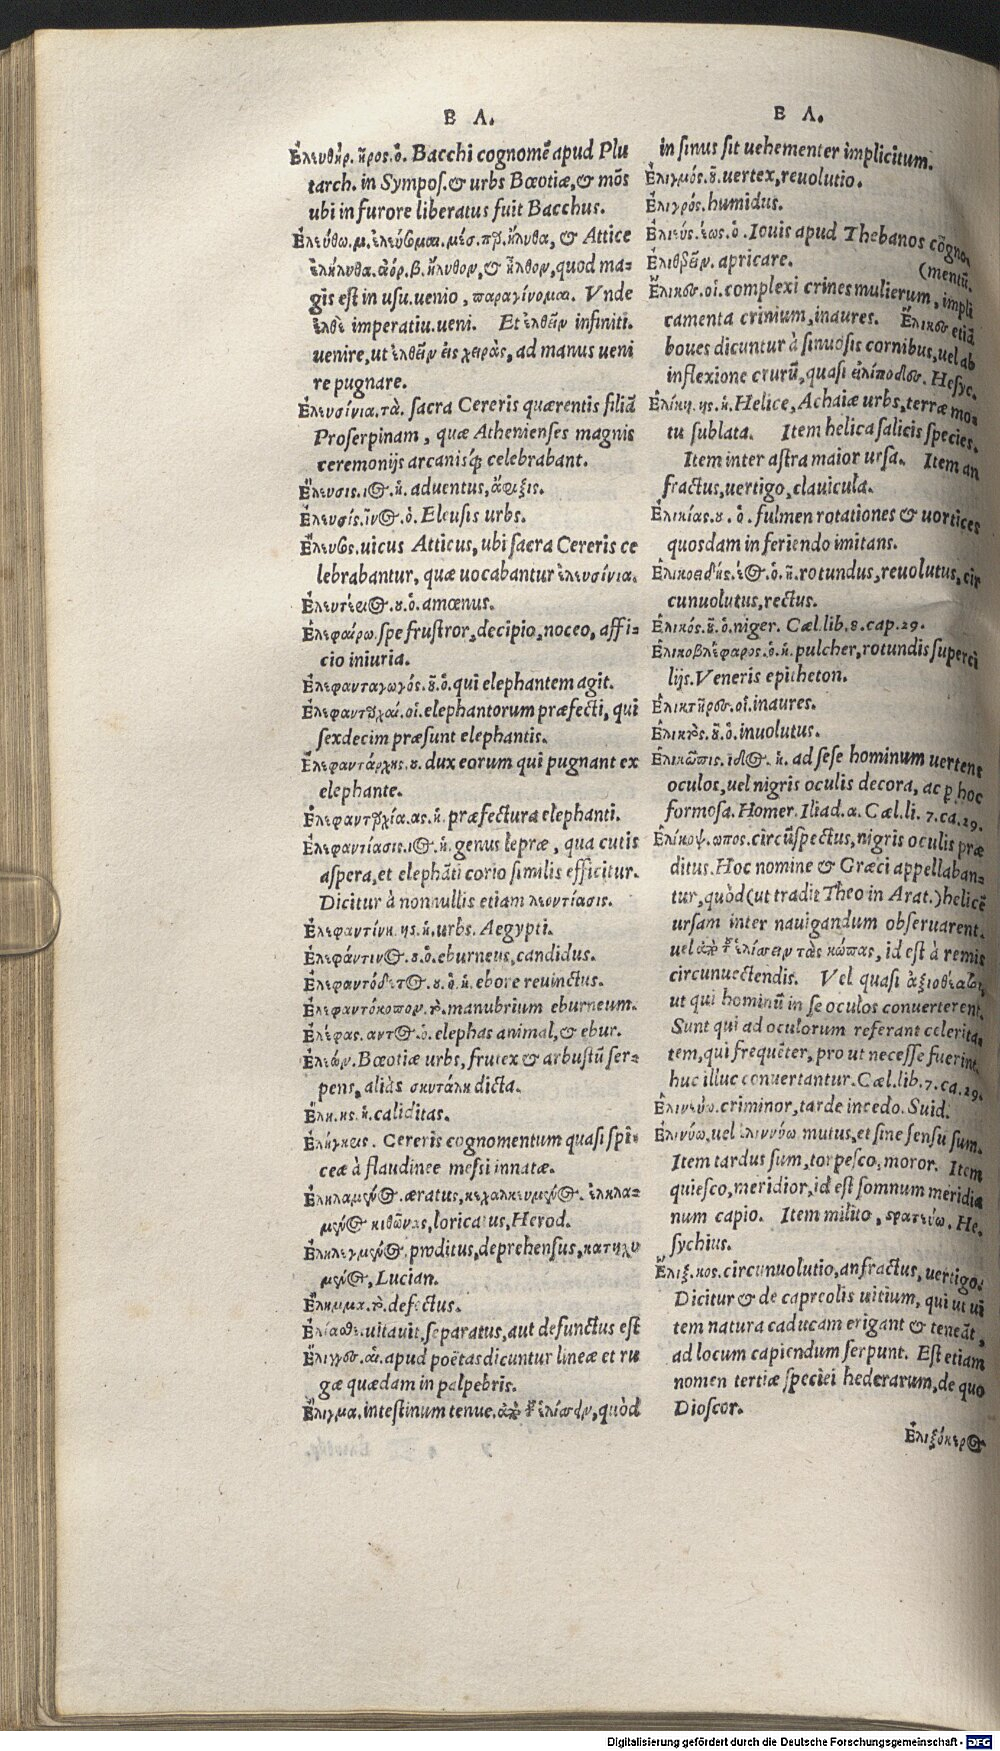 Ε Λ.
Ἐλευθήρ. ῆρος. ὁ. Bacchi cognomē apud Plu
tarch. in Sympos. & urbs Bœotiæ, & mōs
ubi in furore liberatus fuit Bacchus.
Ἐλεύθω. μ. ἐλεύσομαι. μέσ. πρ. ἤλυθα, & Attice
ἐλήλυθα. ἀόρ. β. ἤλυθον, & ἦλθον, quod ma-
gis est in usu. uenio, παραγίνομαι. Vnde
ἐλθὲ imperatiu. ueni. Et ἐλθεῖν infiniti.
uenire, ut ἐλθεῖν εἰς χεῖρας, ad manus ueni
re pugnare.
Ἐλευσίνια. τὰ. sacra Cereris quærentis filiā
Proserpinam, quæ Athenienses magnis
ceremonijs arcanisq; celebrabant.
Ἔλευσις. ιος. ἡ. aduentus, ἄφιξις.
Ἐλευσίς. ῖνος. ὁ. Eleusis urbs.
Ἔλευσις. uicus Atticus, ubi sacra Cereris ce
lebrabantur, quæ uocabantur ἐλευσίνια.
ου. ὁ. amœnus.
Ἐλεφαίρω. spe frustror, decipio, noceo, affi-
cio iniuria.
Ἐλεφανταγωγός. οῦ. ὁ. qui elephantem agit.
Ἐλεφαντάρχαι. οἱ. elephantorum præfecti, qui
sexdecim præsunt elephantis.
Ἐλεφαντάρχης. ου. dux eorum qui pugnant ex
elephante.
Ἐλεφανταρχία. ας. ἡ. præfectura elephanti.
Ἐλεφαντίασις. ιος. ἡ. genus lepræ, qua cutis
aspera, et elephāti corio similis efficitur.
Dicitur à nonnullis etiam λεοντίασις.
Ἐλεφαντίνη. ης. ἡ. urbs. Aegypti.
Ἐλεφάντινος. ου. ὁ. eburneus, candidus.
Ἐλεφαντόδετος. ου. ὁ. ἡ. ebore reuinctus.
Ἐλεφαντόκοπον. τὸ. manubrium eburneum.
Ἐλέφας. αντος. ὁ. elephas animal, & ebur.
Ἐλεών. Bœotiæ urbs, frutex & arbustū ser-
pens, aliâs σκυτάλη dicta.
Ἕλη. ης. ἡ. caliditas.
Cereris cognomentum quasi spi-
ceæ à flaudinee messi innatæ.
Ἐληλαμένος. æratus, κεχαλκευμένος. ἐληλα-
μένος κιθῶνας, loricatus, Herod.
Ἐληλεγμένος, proditus, deprehensus, κατηχυ
μένος, Lucian.
Ἔλημμα. τὸ. defectus.
Ἐλίασθε. uitauit, separatus, aut defunctus est
Ἕλιγγες. αἱ. apud poëtas dicuntur lineæ et ru
gæ quædam in palpebris.
Ἕλιγμα. intestinum tenue. ἀπὸ τοῦ ἑλίσσειν, quòd
Ε Λ.
in sinus sit uehementer implicitum.
Ἑλιγμός. οῦ. uertex, reuolutio.
Ἐλιγρός. humidus.
Ἑλιεύς. έως. ὁ. Iouis apud Thebanos cōgno-
(mentū.
apricare.
Ἕλικες. οἱ. complexi crines mulierum, impli
camenta crinium, inaures. Ἕλικες etiā
boues dicuntur à sinuosis cornibus, uel ab
inflexione crurū, quasi εἰλίποδες. Hesyc.
Ἑλίκη. ης. ἡ. Helice, Achaiæ urbs, terræ mo-
tu sublata. Item helica salicis species.
Item inter astra maior ursa. Item an
fractus, uertigo, clauicula.
Ἑλικίας. ου. ὁ. fulmen rotationes & uortices
quosdam in feriendo imitans.
Ἑλικοειδής. έος. ὁ. ἡ. rotundus, reuolutus, cir
cunuolutus, rectus.
Ἑλικός. οῦ. ὁ. niger. Cæl. lib. 8. cap. 29.
Ἑλικοβλέφαρος. ὁ. ἡ. pulcher, rotundis superci
lijs. Veneris epitheton.
Ἑλικτῆρες. οἱ. inaures.
Ἑλικτὸς. οῦ. ὁ. inuolutus.
Ἑλικῶπις. ιδος. ἡ. ad sese hominum uertens
oculos, uel nigris oculis decora, ac ꝑ hoc
formosa. Homer. Iliad. α. Cæl. li. 7. ca. 29.
Ἑλίκοψ. ωπος. circūspectus, nigris oculis præ
ditus. Hoc nomine & Græci appellaban-
tur, quòd (ut tradit Theo in Arat.) helicē
ursam inter nauigandum obseruarent.
uel ἀπὸ τοῦ ἑλίσσειν τὰς κώπας, id est à remis
circunuectendis. Vel quasi ἀξιοθέατοι,
ut qui hominū in se oculos conuerterent.
Sunt qui ad oculorum referant celerita-
tem, qui frequēter, pro ut necesse fuerint,
huc illuc conuertantur. Cæl. lib. 7. ca. 29.
Ἐλινεύω. criminor, tarde incedo. Suid.
Ἐλινύω, uel ἐλιννύω. mutus, et sine sensu sum.
Item tardus sum, torpesco, moror. Item
quiesco, meridior, id est somnum meridia
num capio. Item milito, στρατεύω. He-
sychius.
Ἕλιξ. κος. circunuolutio, anfractus, uertigo.
Dicitur & de capreolis uitium, qui ut ui
tem natura caducam erigant & teneāt,
ad locum capiendum serpunt. Est etiam
nomen tertiæ speciei hederarum, de quo
Dioscor.
Ἑλιξόκερος
Digitalisierung gefördert durch die Deutsche Forschungsgemeinschaft - DFG